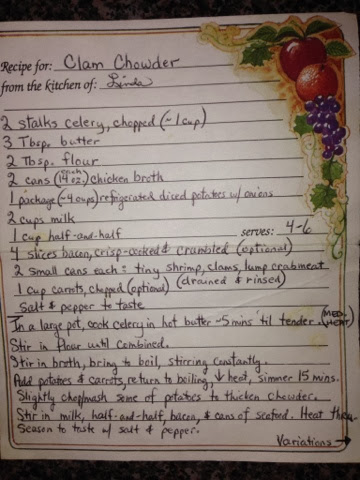 Recipe for: Clam Chowder
from the kitchen of: Linda
2 stalks celery, chopped (~1 cup)
3 Tbsp. butter
2 Tbsp. flour
2 cans (14 oz. each) chicken broth
1 package (~4 cups) refrigerated diced potatoes w/ onions
2 cups milk
1 cup half-and-half serves: 4-6
4 slices bacon, crisp-cooked & crumbled (optional)
2 small cans each: tiny shrimp, clams, lump crabmeat
1 cup carrots, chopped (optional) (drained & rinsed)
Salt & pepper to taste
In a large pot, cook celery in hot butter ~5 mins 'til tender. (MED. HEAT)
Stir in flour until combined.
Stir in broth, bring to boil, stirring constantly.
Add potatoes & carrots, return to boiling, ↓ heat, simmer 15 mins.
Slightly chop/mash some of potatoes to thicken chowder.
Stir in milk, half-and-half, bacon, & cans of seafood. Heat thru.
Season to taste w/ salt & pepper.
Variations →